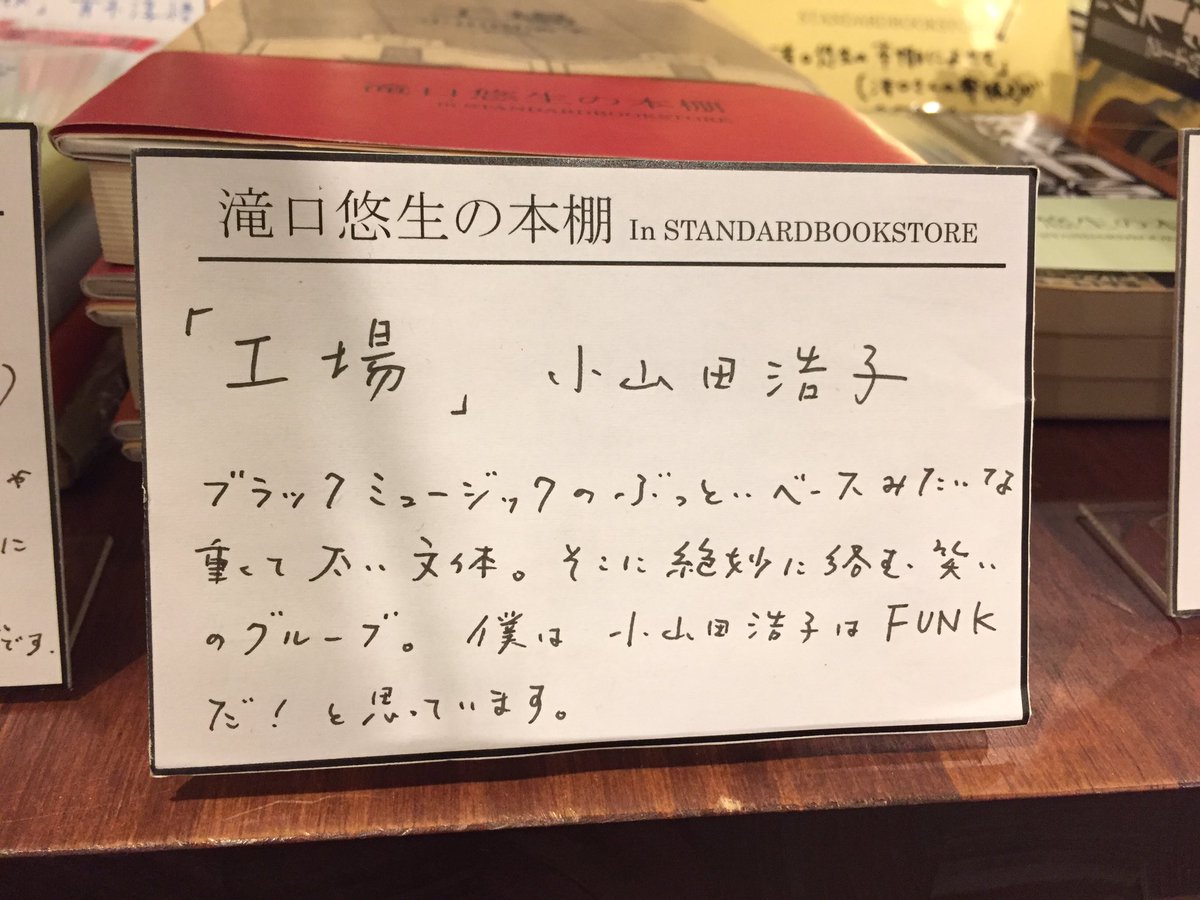 滝口悠生の本棚
IN STANDARDBOOKSTORE
STANDARDBOOKSTORE
滝口悠生の本棚 In STANDARDBOOKSTORE
「工場」 小山田浩子
ブラックミュージックのぶっといベースみたいな
重くて太い文体。そこに絶妙に絡む笑い
のグルーブ。僕は小山田浩子はFUNK
だ!と思っています。
に
です.